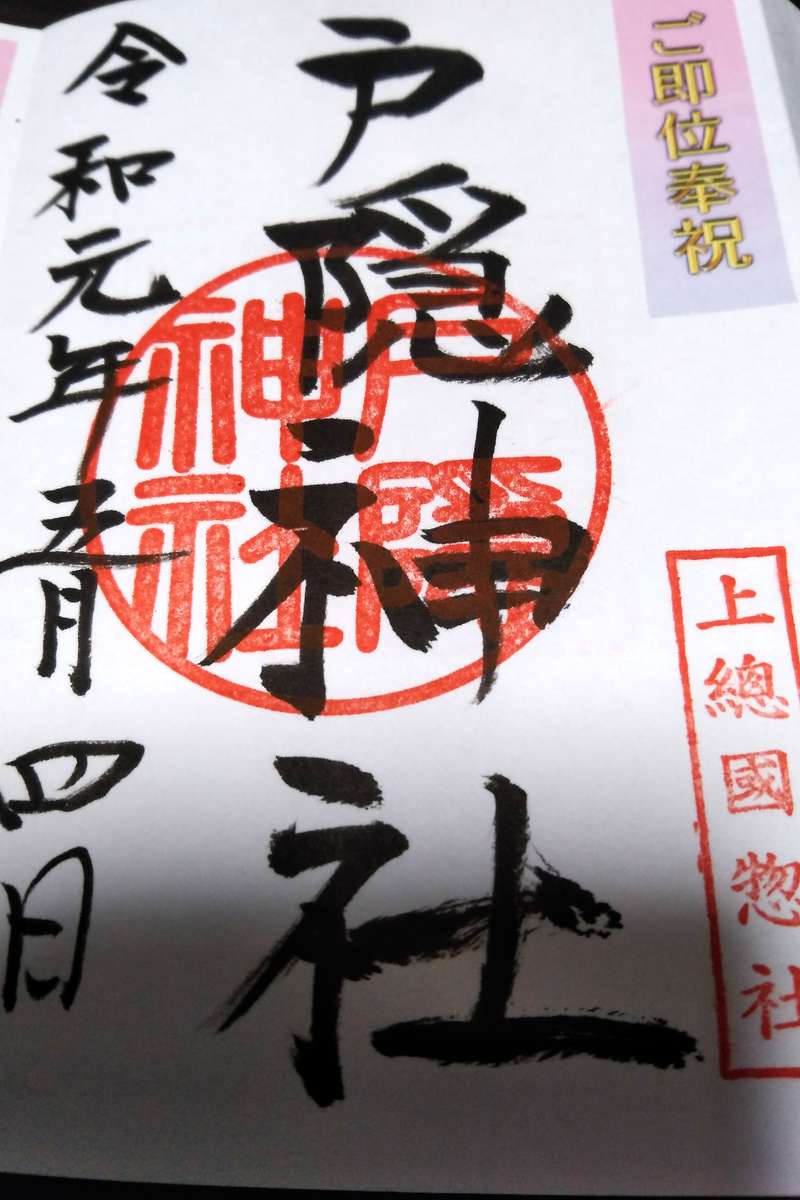 ご即位奉祝
上總國惣社
戸隠神社
戸隠
神社
令和元年五月四日